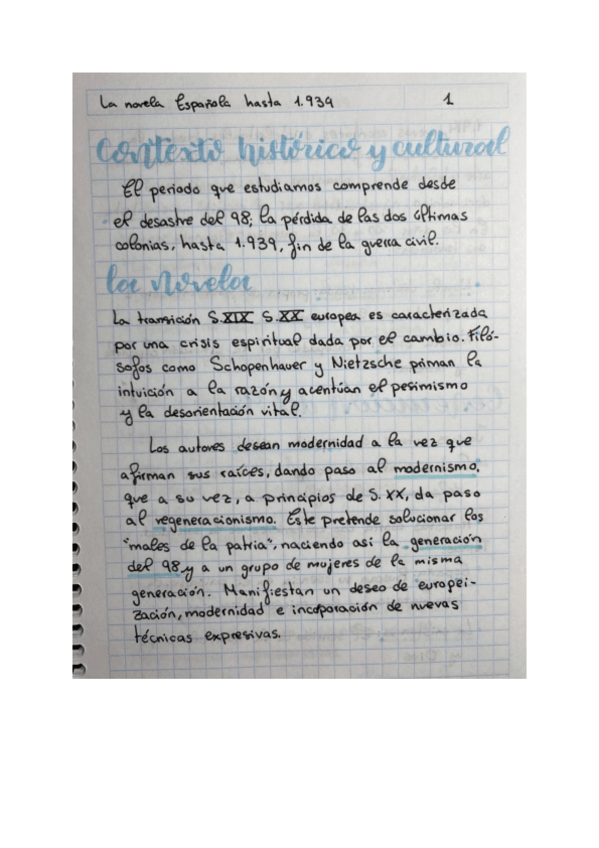 La novela Española hasta 1.939 1
Contexto histórico y cultural
El periodo que estudiamos comprende desde
el desastre del 98; la pérdida de las dos últimas
colonias, hasta 1.939, fin de la guerra civil.
la novela
La transición S.XIX S.XX europea es caracterizada
por una crisis espiritual dada por el cambio. Filó-
sofos como Schopenhauer y Nietzsche priman la
intuición a la razón y acentúan el pesimismo
y la desorientación vital.
Los autores desean modernidad a la vez que
afirman sus raíces, dando paso al modernismo,
que a su vez, a principios de S.XX, da paso
al regeneracionismo. Este pretende solucionar los
"males de la patria", naciendo así la generación
del 98 y a un grupo de mujeres de la misma
generación. Manifiestan un deseo de europei-
zación, modernidad e incoporación de nuevas
técnicas expresivas.